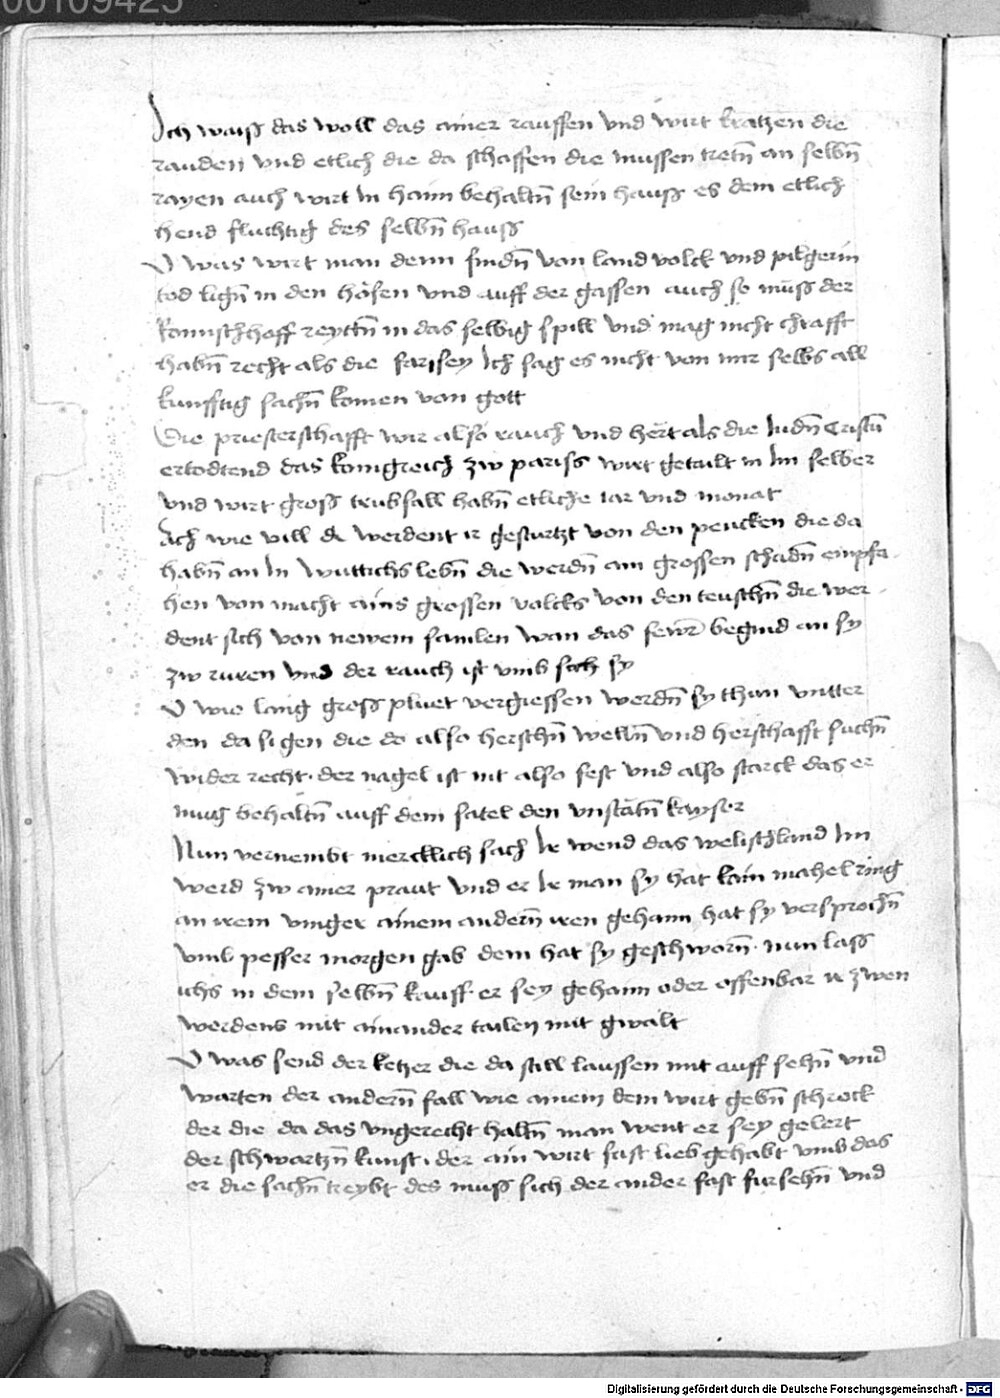 00109425
Ich waiß das woll das ainer rauffen vnd wirt kratzen die
rauden vnd etlich die da schaffen die mussen tretn̄ an selbn̄
rayen auch wirt in haim behaltn̄ sein hauß es dem etlich
hend fluchtig des selbn̄ hauß
O was wirt man denn findn̄ von land volck vnd pilgerin
tod lign̄ in den hǒfen vnd auff der gassen auch so muß der
reyttn̄ in das selbig spill vnd mag nicht chrafft
habn̄ recht als die farisey Ich sag es nicht von mir selbs all
kunfftig sachn̄ komen von gott
Die priesterschafft wir also rauch vnd hert als die Iudn̄ Cristū
ertodtend das konigreich zw pariss wirt getailt in im selber
vnd wirt groß trubsall habn̄ etliche iar vnd monat
Ach wie vill der werdent ir gesturtzt von den pencken die da
habn̄ an In wuttrichs lebn̄ die werdn̄ ain grossen schadn̄ empfa
hen von macht ains grossen volcks von den teuschn̄ die wer
dent sich von newem samlen wan das fewr begind an sy
zw ruren vnd der rauch ist vmb sich sy
O wie lang groß pluet vergiessen werdn̄ sy thun vntter
den da ligen die do also herschn̄ welln̄ vnd herschafft suchn̄
wider recht der nagel ist nit also fest vnd also starck das er
mug behaltn̄ auff dem satel den vnstätn̄ kayser
Nun vernembt mercklich sach Ir wend das welischland Im
werd zw ainer praut vnd er Ir man sy hat kain mahel ring
an irem vinger ainem andern̄ iren gehaim hat sy versprochn̄
vmb pesser morgen gab dem hat sy geschworn̄ nun lass
ichs in dem selbn̄ kauff er sey gehaim oder offenbar ir zwen
werdens mit ainander tailen mit gwalt
O was send der ketzer die da still laussen mit auff sehn̄ vnd
warten der andern̄ fall wie ainem dem wirt gebn̄ schreck
der die da das vngerecht haltn̄ man went er sey gelert
der schwartzn̄ kunst der ain wirt fast lieb gehabt vmb das
er die sachn̄ treybt des muß sich der ander fast fursehn̄ vnd
Digitalisierung gefördert durch die Deutsche Forschungsgemeinschaft - DFG